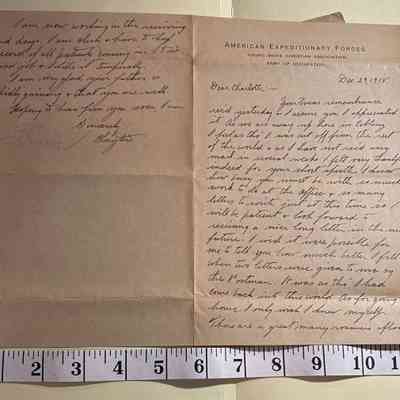 I am now working in the receiving
and I am clerk & have to keep
record of all patients coming in. It is a
job &
I am very glad your father is
gaining & that you are well.
Hoping to hear from you soon I am
Sincerely
AMERICAN EXPEDITIONARY FORCES
YOUNG MEN'S CHRISTIAN ASSOCIATION
ARMY OF OCCUPATION
Dec 29, 1918
Dear Charlotte:—
Your Xmas remembrance
rec'd yesterday & I assure you I appreciated
it. As we are away up here in
I feel as tho I was cut off from the rest
of the world & as I have not rec'd any
mail in several weeks I felt very
indeed for your short epistle. I know
how busy you must be with so much
work to do at the office & so many
letters to write just at this time so I
will be patient & look forward to
receiving a nice long letter in the near
future. I wish it were possible for
me to tell you how much better I felt
when two letters were given to me by
the Postman. It was as tho I had
come back into this world. As for going
home I only wish I knew myself.
There are a great many rumors
2 3 4 5 6 7 8 9 10 11